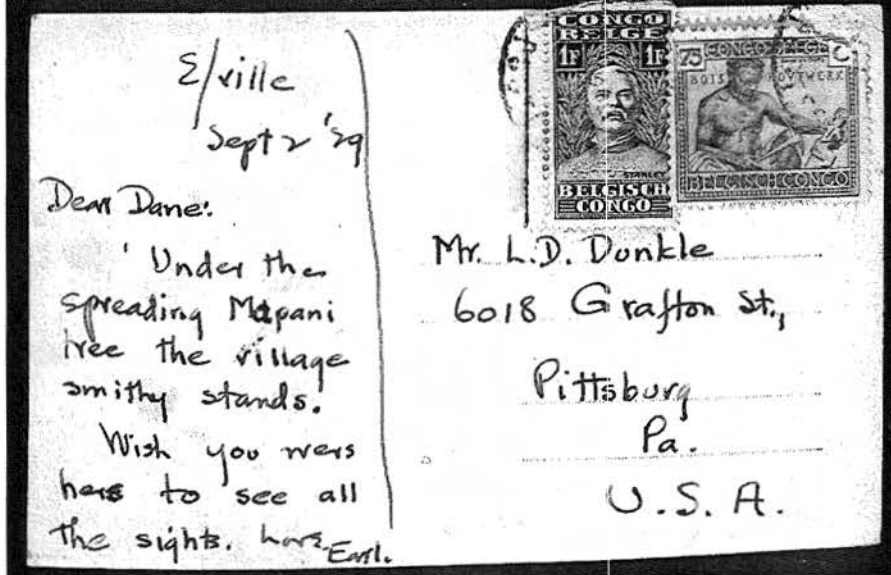 E/ville
Sept 2 '29
Dear Dane:
' Under the
spreading Mapani
tree the village
smithy stands.
Wish you were
here to see all
the sights. Love
Earl.
CONGO
BELGE
1F 1F
STANLEY
BELGISCH
CONGO
75 CONGO BELGE C
BOIS HOUTWERK
BELGISCH CONGO
Mr. L.D. Dunkle
6018 Grafton St.,
Pittsburg
Pa.
U.S.A.